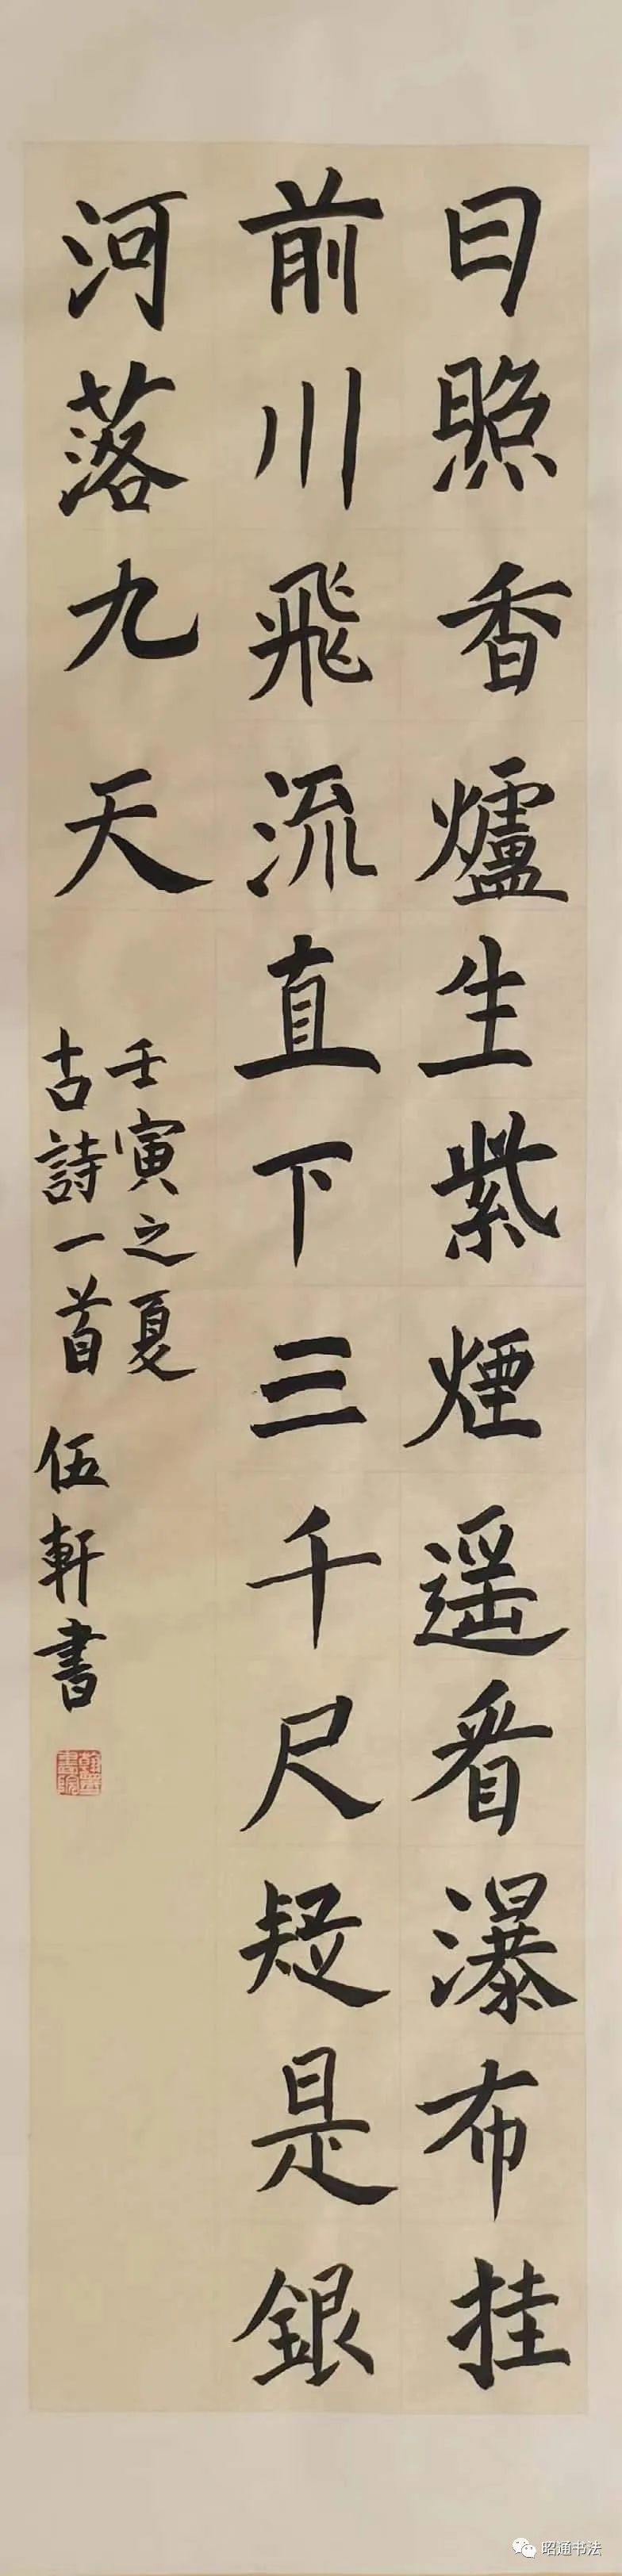 日照香爐生紫煙遥看瀑布挂
前川飛流直下三千尺疑是銀
河落九天
壬寅之夏
古詩一首 伍軒書
昭通书法